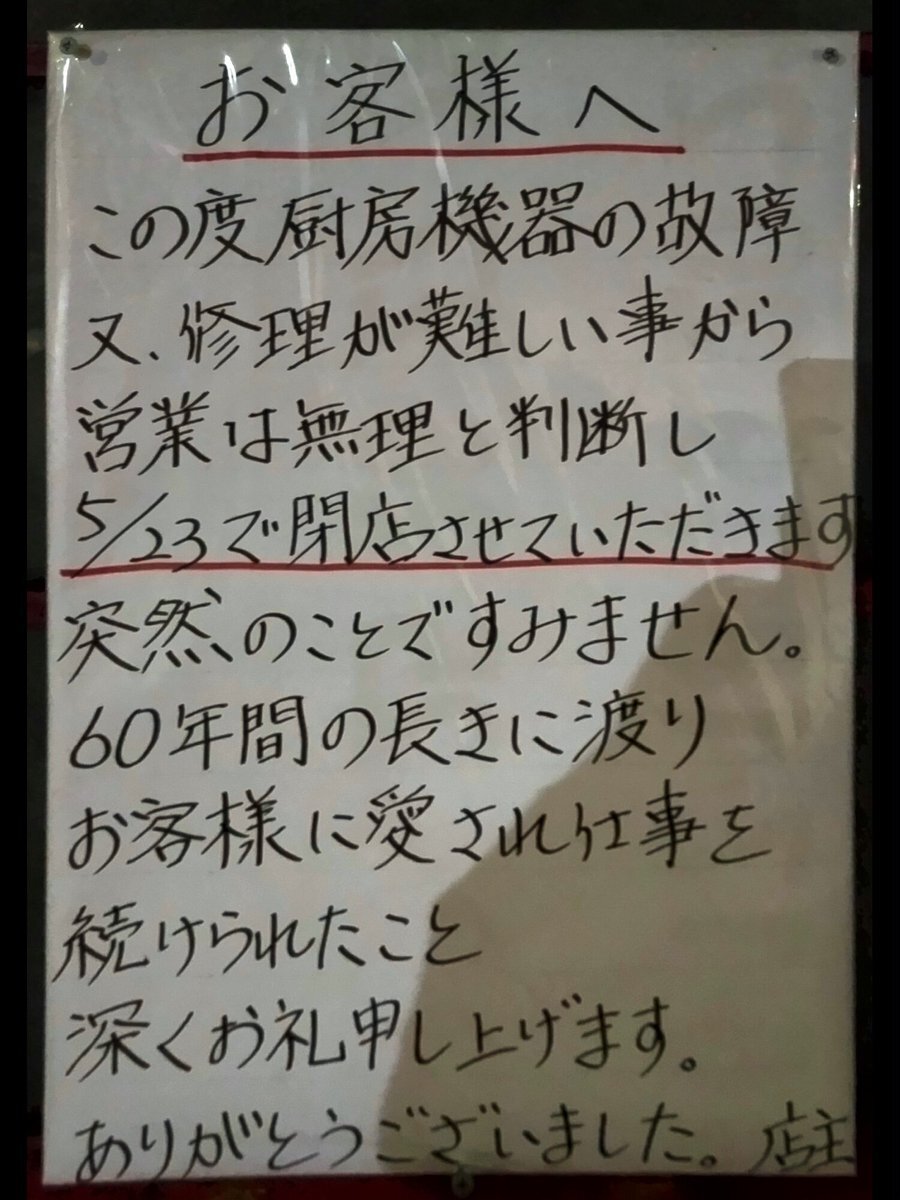 お客様へ
この度厨房機器の故障
又、修理が難しい事から
営業は無理と判断し
5/23で閉店させていただきます
突然のことですみません。
60年間の長きに渡り
お客様に愛され仕事を
続けられたこと
深くお礼申し上げます。
ありがとうございました。店主